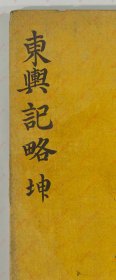 東輿記略 坤